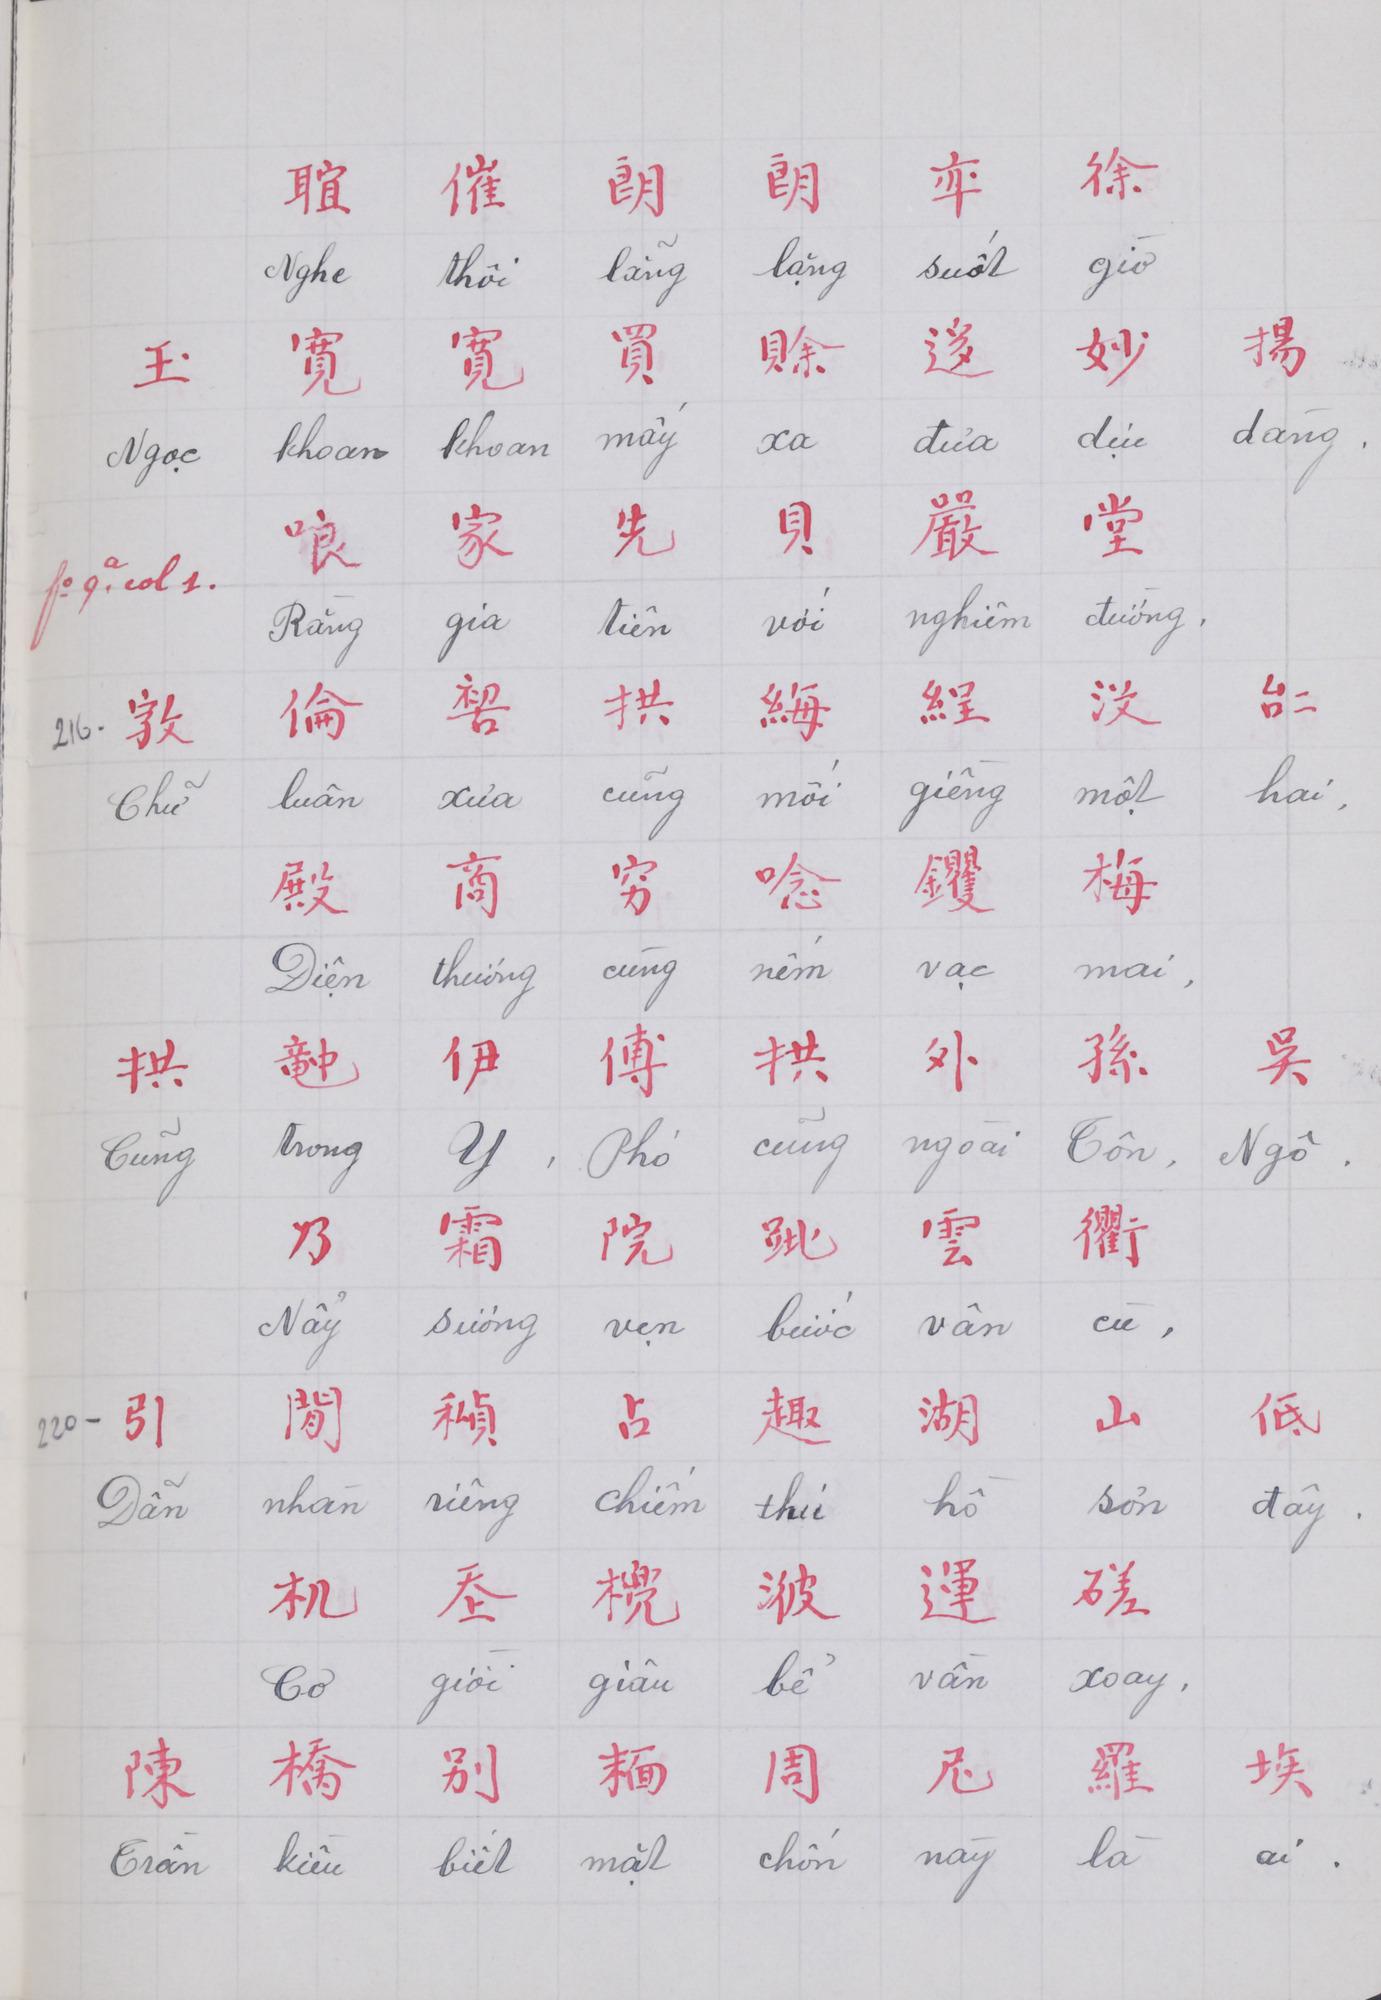 聇 催 朗 朗 卒 徐
Nghe thôi lẵng lặng suốt giờ
玉 寛 寛 買 賒 迻 妙 揚
Ngọc khoan khoan mấy xa đưa dịu dàng.
哴 家 先 貝 嚴 堂
fº 9ª. col 1.
Rằng gia tiên với nghiêm đường,
216- 倫 拱 䋦 綎 沒 𠄩
Chữ luân xưa cũng mối giềng một hai,
殿 商 穷 唸 钁 梅
Diện thương cùng nếm vạc mai,
拱 𥪝 伊 傅 拱 外 孫 吳
Cũng trong Y, Phó cũng ngoài Tôn, Ngô.
乃 霜 院 跐 雲 衢
Nẩy sương vẹn bước vân cù,
220- 引 閒 占 趣 湖 山 低
Dẫn nhàn riêng chiếm thú hồ sơn đây.
机 𡗶 櫈 波 運 磋
Cơ giời giâu bể vần xoay,
陳 橋 别 𩈘 周 尼 羅 埃
Trần kiều biết mặt chốn nầy là ai.